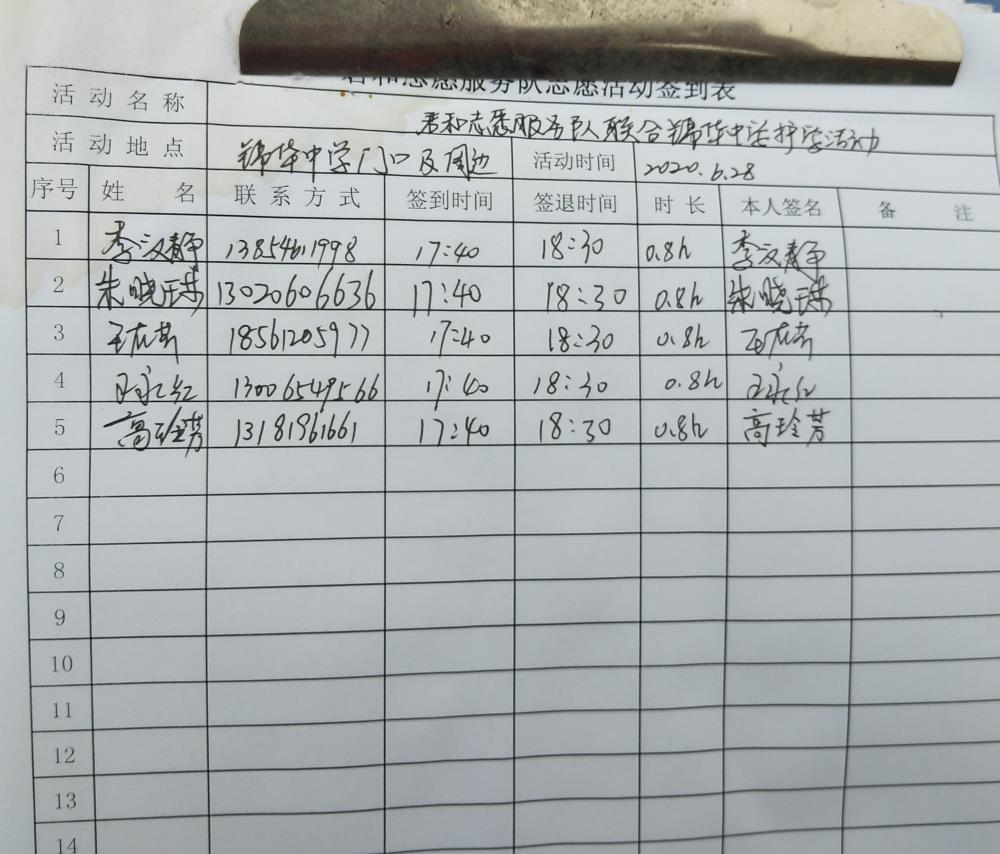 君和志愿服务队志愿活动签到表
活动名称 君和志愿服务队联合锦华中学护学活动
活动地点 锦华中学门口及周边 活动时间 2020.6.28
序号 姓名 联系方式 签到时间 签退时间 时长 本人签名 备注
1 李汉静 13854611998 17:40 18:30 0.8h 李汉静
2 朱晓珠 13020606636 17:40 18:30 0.8h 朱晓珠
3 18561205977 17:40 18:30 0.8h
4 王永红 13006549566 17:40 18:30 0.8h 王永红
5 高玲芳 13181961661 17:40 18:30 0.8h 高玲芳
6
7
8
9
10
11
12
13
14